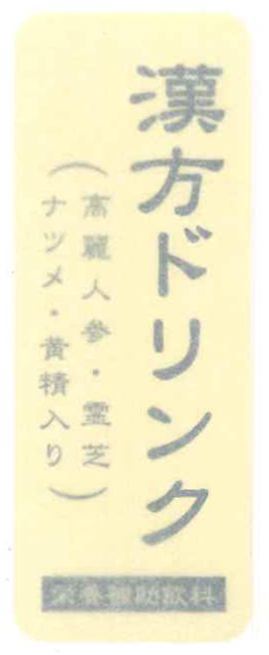 漢方ドリンク
（高麗人参・霊芝
ナツメ・黄精入り）
栄養補助飲料